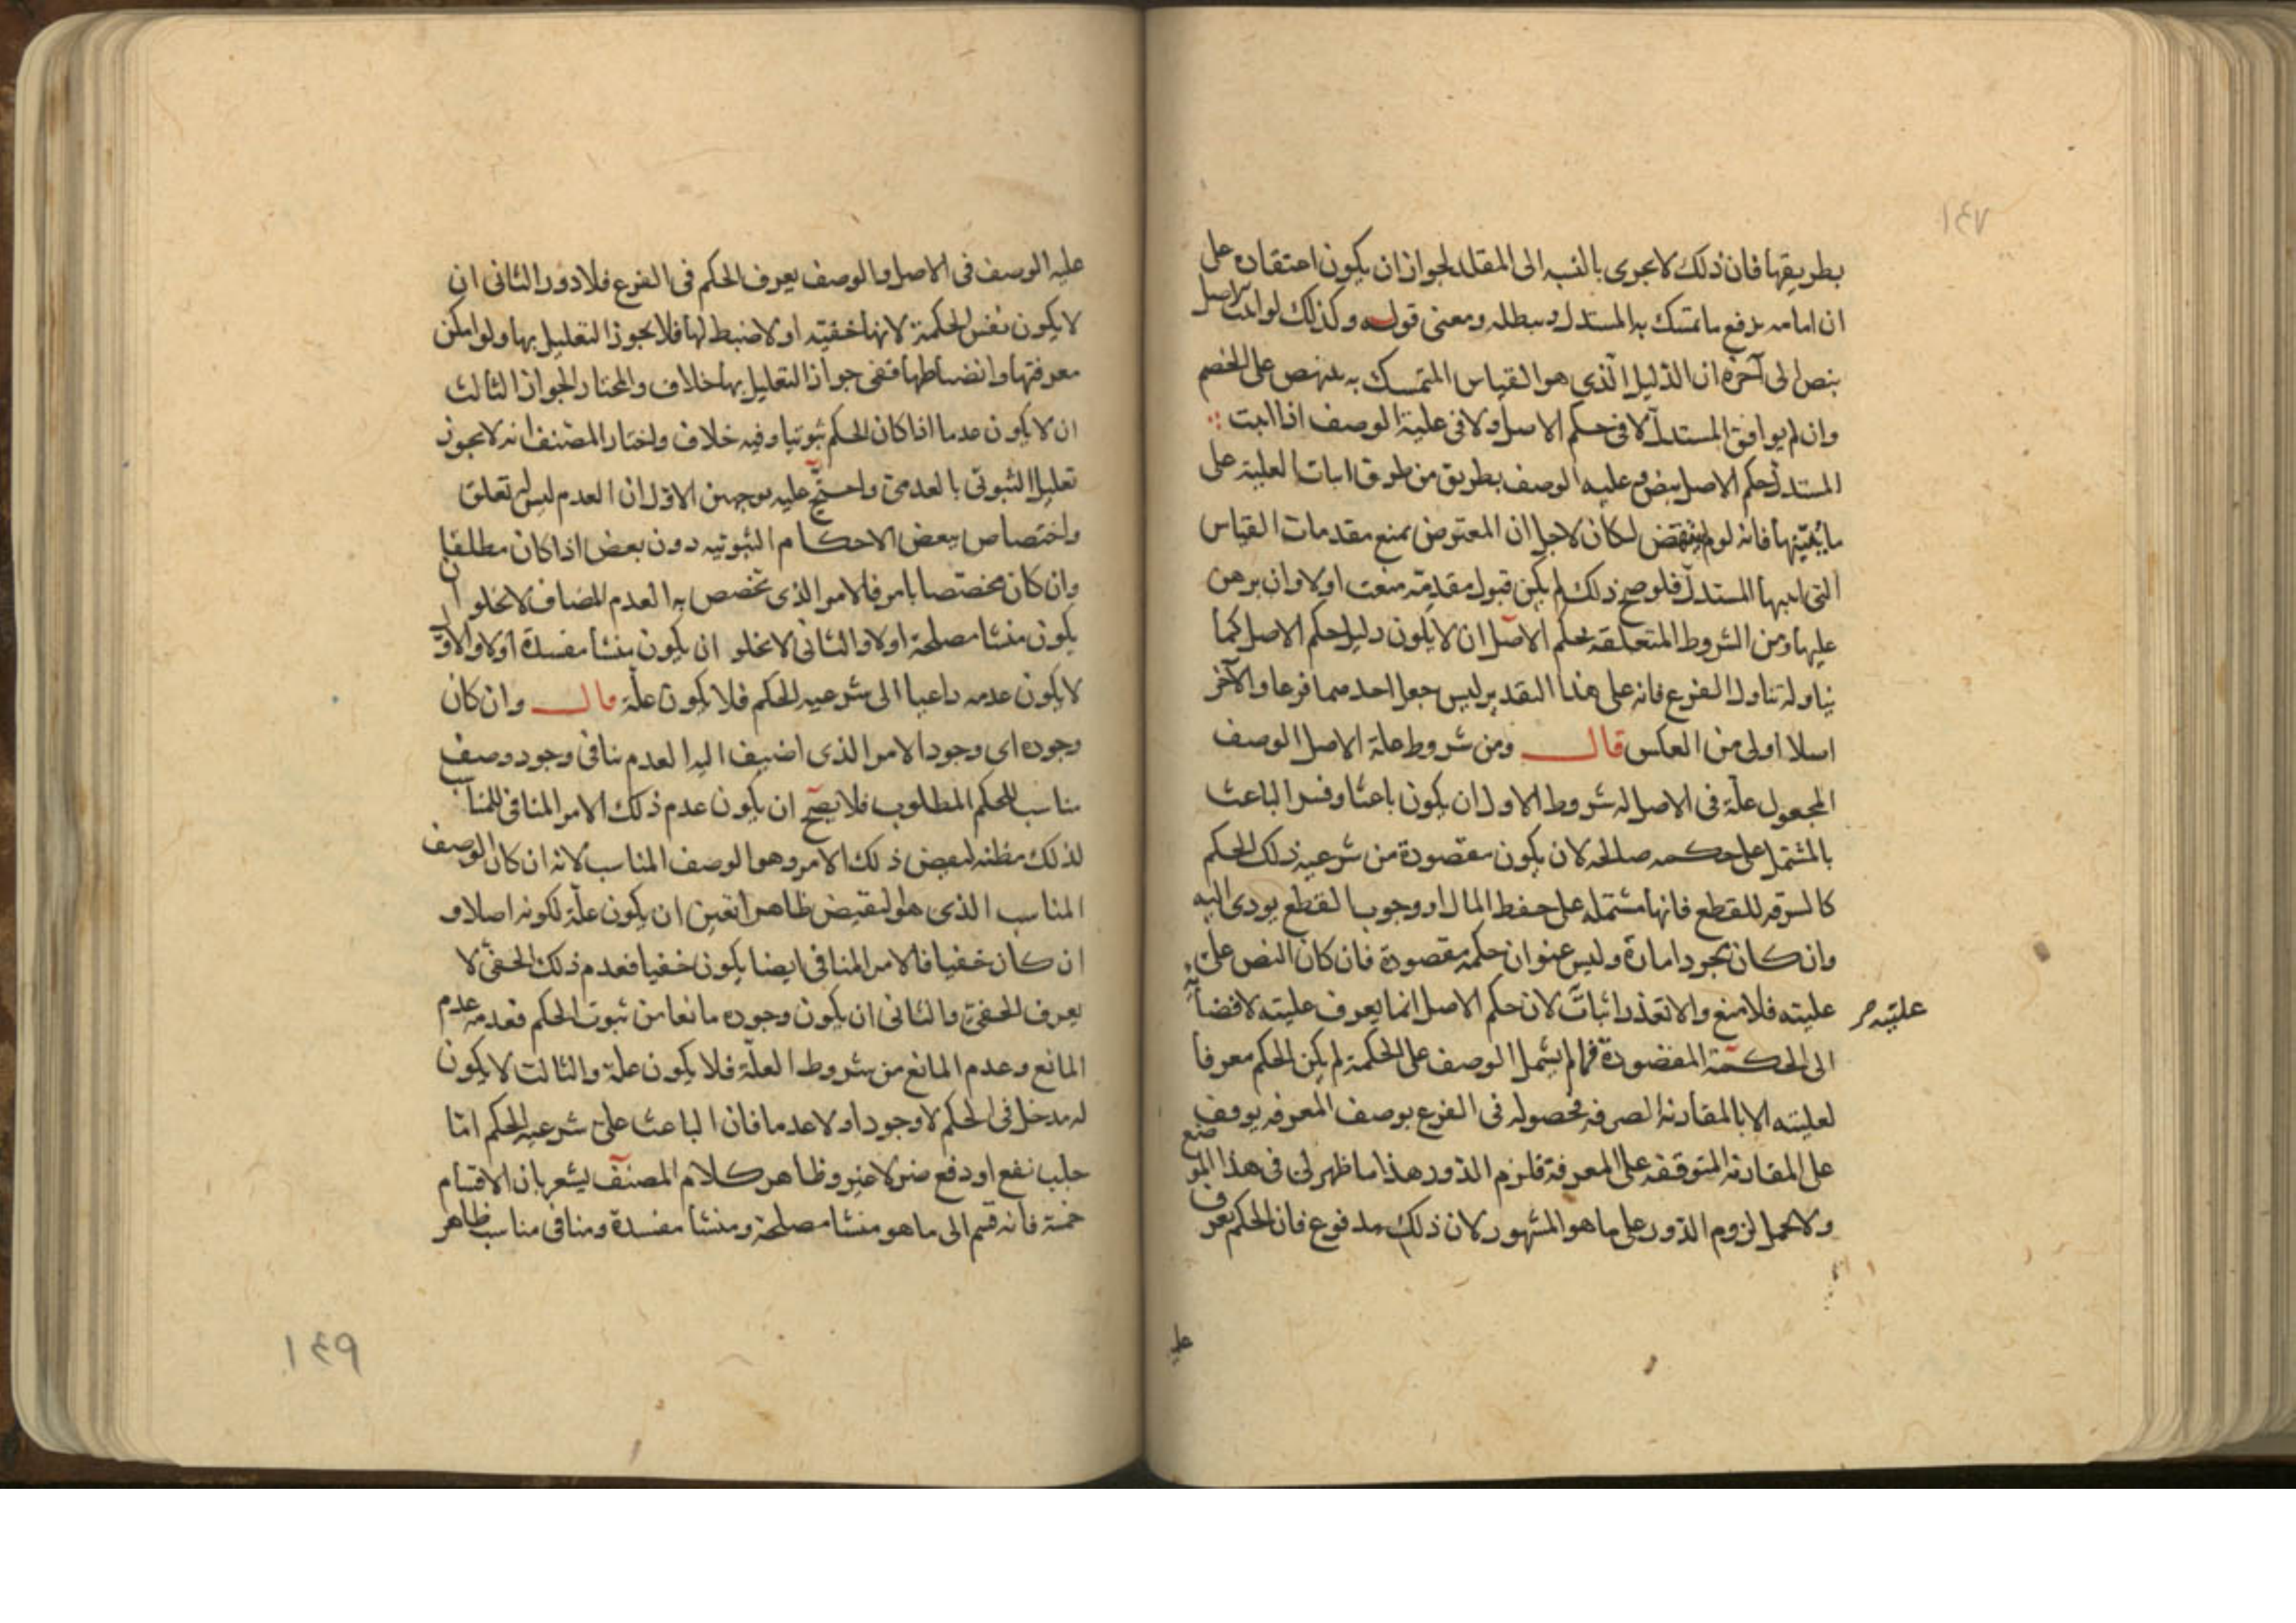 ١٤٧
بطريقها فان ذلك لا يجرى بالنسبه الى المقلد لجواز ان يكون اعتقاده على
ان امامه يدفع ما تمسك به المستدل ويبطله ومعنى قوله وكذلك لو اثبت الاصل
بنص الى آخره ان الدليل الذي هو القياس المتمسك به ينهض على الخصم
وان لم يوافق المستدل لا فى حكم الاصل ولا فى علية الوصف اذا اثبت
المستدل حكم الاصل بنص وعليه الوصف بطريق من طرق اثبات العلية على
فانه لو لم ينتهض لكان لاجل ان المعترض يمنع مقدمات القياس
التى اثبتها المستدل فلو صح ذلك لم يكن قبول مقدمة منعت اولا وان برهن
عليها ومن الشروط المتعلقه بحكم الاصل ان لا يكون دليل حكم الاصل كما
يتناوله تناول الفرع فانه على هذا التقدير ليس جعل احدهما فرعا والآخر
اصلا اولى من العكس قال ومن شروط علة الاصل الوصف
المجعول علّة فى الاصل له شروط الاول ان يكون باعثا وفسر الباعث
بالمشتمل على حكمه صالحه لان يكون مقصودة من شرعيه ذلك الحكم
كالسرقه للقطع فانها مشتمله على حفظ المال او وجوب القطع يودى اليه
وان كان مجرد امارة وليس عنوان حكمة مقصودة فان كان النص على
عليته فلا منع والا تعذر اثبات لان حكم الاصل انما يعرف عليته لافضائه
عليته
الى الحكمة المقصودة فما لم يشمل الوصف على الحكمة لم يكن الحكم معرفا
لعليته الا بالمقارنه الصرفه فحصوله فى الفرع بوصف المعرفه يوقف
على المقارنه المتوقفه على المعرفة فلزم الدور هذا ما ظهر لى فى هذا الموضع
ولا يحمل لزوم الدور على ما هو المشهور لان ذلك مدفوع فان الحكم يعرف
عليه
عليه الوصف فى الاصل والوصف يعرف الحكم فى الفرع فلا دور الثانى ان
لا يكون نفس الحكمة لانها خفيته او لا ضبط لها فلا يجوز التعليل بها ولو امكن
معرفتها وانضباطها ففى جواز التعليل بها خلاف والمختار الجواز الثالث
ان لا يكون عدما اذا كان الحكم ثبوتيا وفيه خلاف واختار المصنف انه لا يجوز
تعليل الثبوتى بالعدمى واحتجّ عليه بوجهين الاول ان العدم ليس له تعلق
واختصاص ببعض الاحكام الثبوتيه دون بعض اذا كان مطلقا
وان كان مختصا بامر فالامر الذى تخصص به العدم المضاف لا يخلو ان
يكون منشا مصلحة اولا والثانى لا يخلو ان يكون منشا مفسدة اولا والاول
لا يكون عدمه داعيا الى شرعيه الحكم فلا يكون علّة قال وان كان
وجوده اى وجود الامر الذى اضيف اليه العدم ينافى وجود وصف
مناسب للحكم المطلوب فلا يصح ان يكون عدم ذلك الامر المنافى للمناسب
لذلك مظنه لنقيض ذلك الامر وهو الوصف المناسب لانه ان كان الوصف
المناسب الذى هو النقيض ظاهرا تعين ان يكون علّة لكونه اصلا و
ان كان خفيا فالامر المنافى ايضا يكون خفيا فعدم ذلك الخفى لا
يعرف الخفى والثانى ان يكون وجوده مانعا من ثبوت الحكم فعدمه عدم
المانع وعدم المانع من شروط العلّة فلا يكون علة والثالث لا يكون
له مدخل فى الحكم لا وجودا ولا عدما فان الباعث على شرعيه الحكم امّا
جلب نفع او دفع ضر لا غير وظاهر كلام المصنف يشعر بان الاقسام
خمسة فانه قسم الى ما هو منشا مصلحة ومنشا مفسدة ومنافى مناسب ظاهر
١٤٩